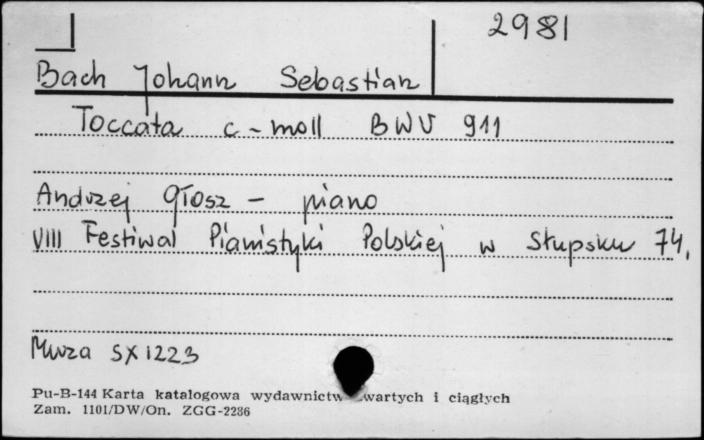 2981
Bach Johann Sebastian
Toccata c-moll BWV 911
Andrzej Głosz - piano
VIII Festiwal Pianistyki Polskiej w Słupsku 74.
Muza SX 1223
Pu-B-144 Karta katalogowa wydawnictw zwartych i ciągłych
Zam. 1101/DW/On. ZGG-2236